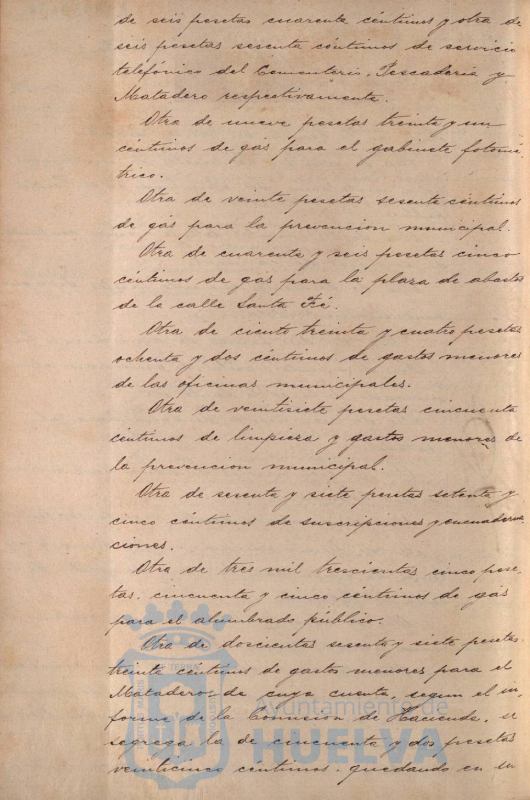 de seis pesetas cuarenta céntimos y otra de
seis pesetas sesenta céntimos de servicio
telefónico del Cementerio, Pescadería y
Matadero respectivamente.
Otra de nueve pesetas treinta y un
céntimos de gas para el gabinete fotomé
trico.
Otra de veinte pesetas sesenta céntimos
de gas para la prevencion municipal.
Otra de cuarenta y seis pesetas cinco
céntimos de gas para la plaza de abastos
de la calle Santa Fé.
Otra de ciento treinta y cuatro pesetas
ochenta y dos céntimos de gastos menores
de las oficinas municipales.
Otra de veintisiete pesetas cincuenta
céntimos de limpieza y gastos menores de
la prevencion municipal.
Otra de sesenta y siete pesetas setenta y
cinco céntimos de suscripciones y encuaderna
ciones.
Otra de tres mil trescientas cinco pese
tas, cincuenta y cinco centimos de gas
para el alumbrado público.
Otra de doscientas sesenta y siete pesetas
treinta céntimos de gastos menores para el
Matadero, de cuya cuenta, segun el in
forme de la Comision de Hacienda, se
segrega la de cincuenta y dos pesetas
veinticinco céntimos, quedando en su
Ayuntamiento de
HUELVA